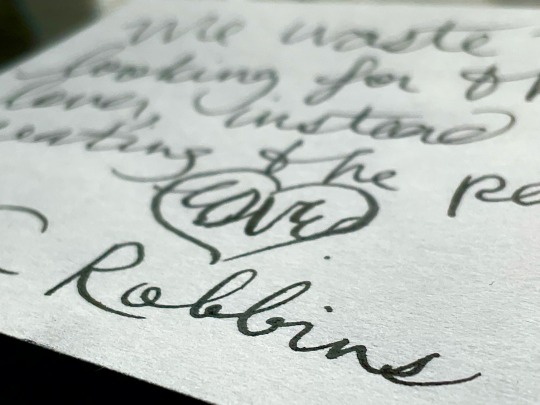 We waste
looking for
lover, instead
creating the
love.
Robbins